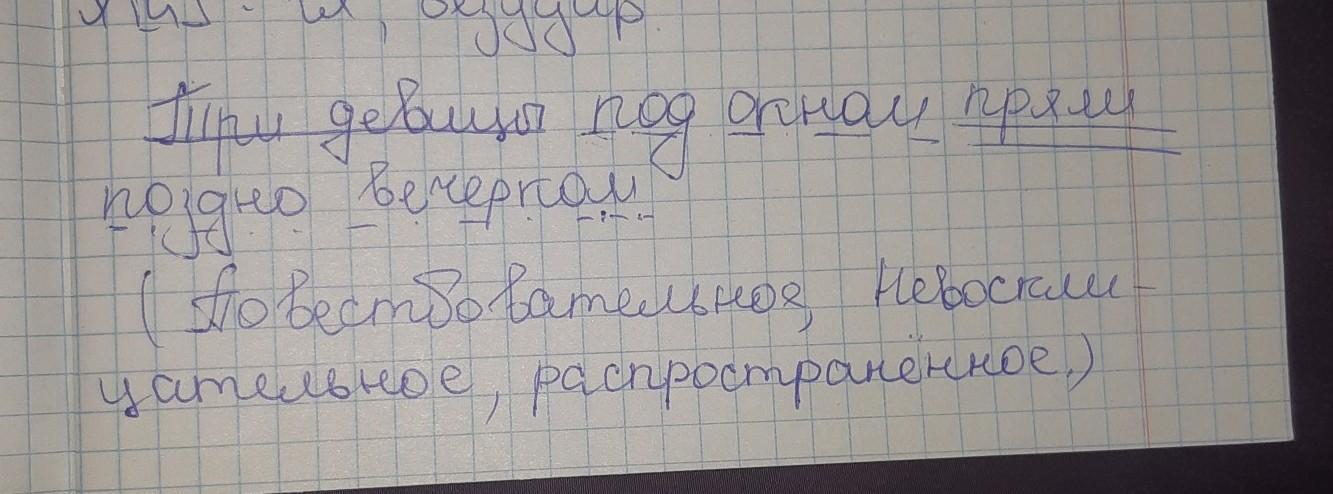 Три девицы под окном пряли
поздно вечерком
(Повествовательное, невоскли-
цательное, распространённое.)